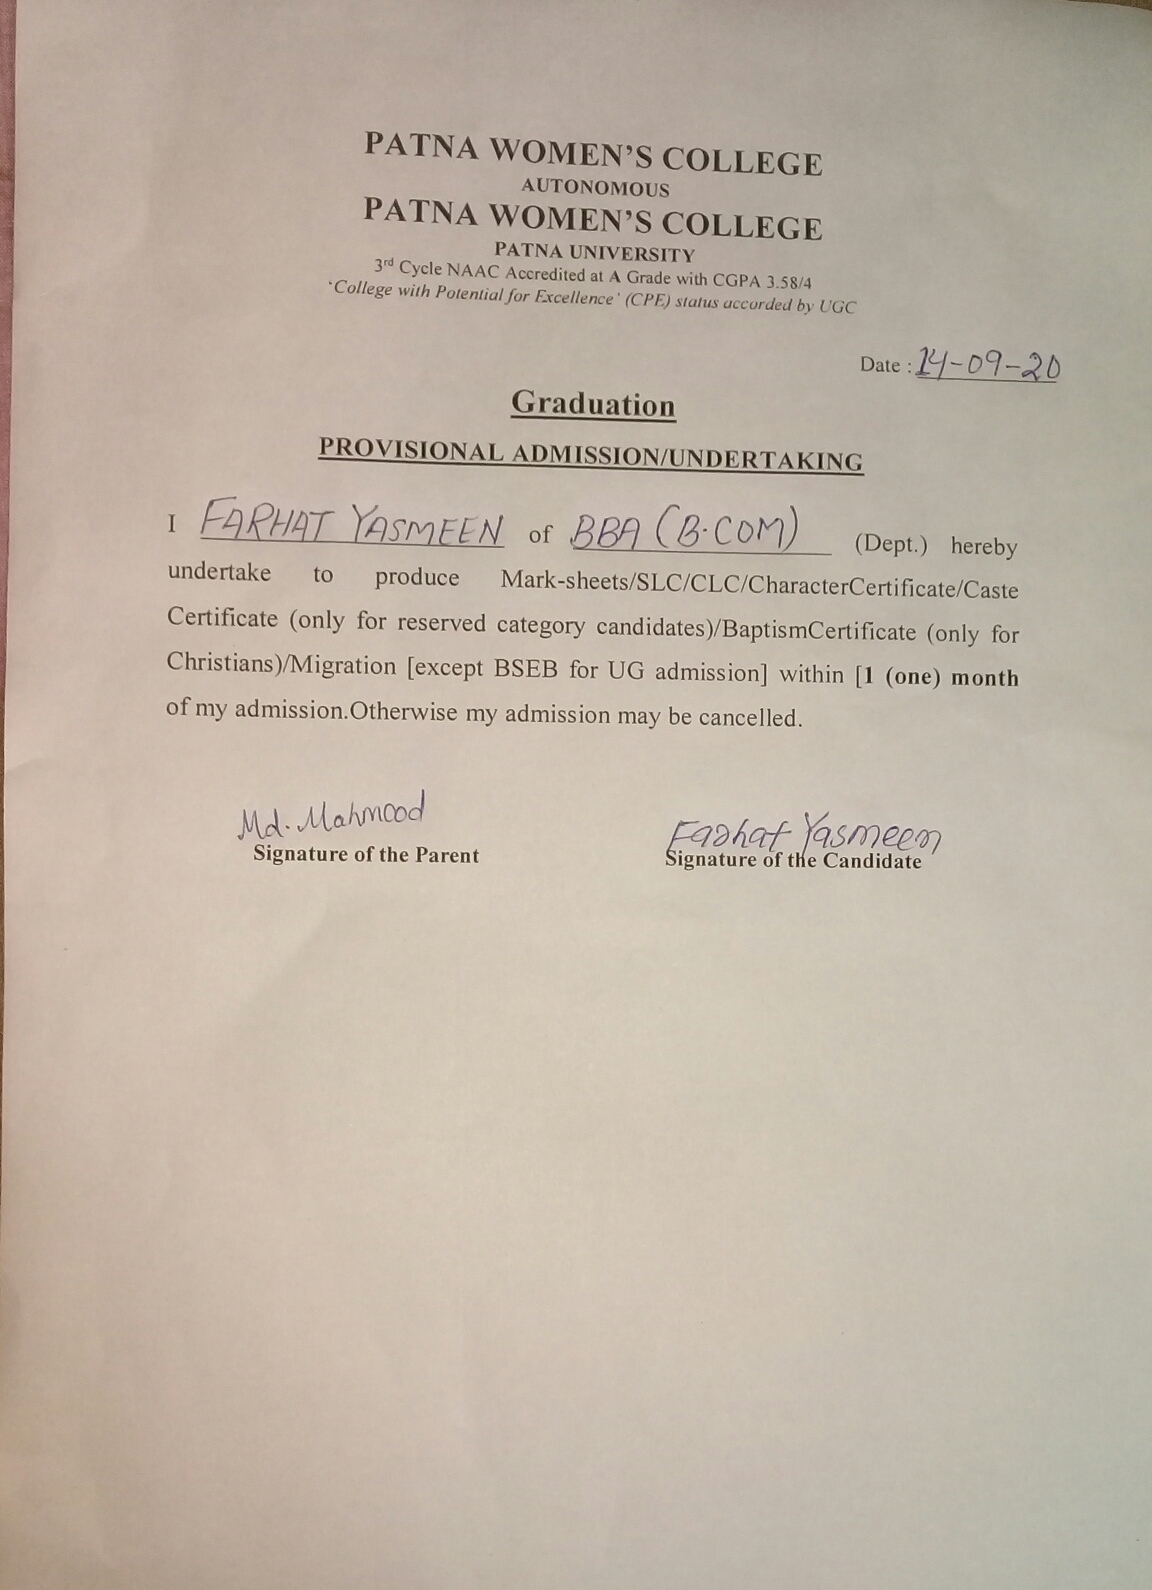 PATNA WOMEN'S COLLEGE
AUTONOMOUS
PATNA WOMEN'S COLLEGE
PATNA UNIVERSITY
3rd Cycle NAAC Accredited at A Grade with CGPA 3.58/4
'College with Potential for Excellence' (CPE) status accorded by UGC
Date : 14-09-20
Graduation
PROVISIONAL ADMISSION/UNDERTAKING
I FARHAT YASMEEN of BBA (B.COM) (Dept.) hereby
undertake to produce Mark-sheets/SLC/CLC/CharacterCertificate/Caste
Certificate (only for reserved category candidates)/BaptismCertificate (only for
Christians)/Migration [except BSEB for UG admission] within [1 (one) month
of my admission.Otherwise my admission may be cancelled.
Md. Mahmood Farhat Yasmeen
Signature of the Parent Signature of the Candidate